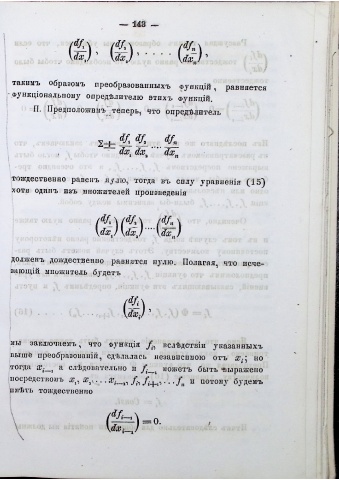 — 143 —
(df₁/dx₁), (df₂/dx₂), . . . . . . (dfₙ/dxₙ),
такимъ образомъ преобразованныхъ функцій, равняется
функціональному опредѣлителю этихъ функцій.
II. Предположимъ теперь, что опредѣлитель
Σ ± df₁/dx₁ df₂/dx₂ .... dfₙ/dxₙ
тождественно равенъ нулю, тогда въ силу уравненія (15)
хотя одинъ изъ множителей произведенія
(df₁/dx₁) (df₂/dx₂) .... (dfₙ/dxₙ)
долженъ тождественно равнятся нулю. Полагая, что исче-
вающій множитель будетъ
(dfᵢ/dxᵢ),
мы заключаемъ, что функція fᵢ, вслѣдствіи указанныхъ
выше преобразованій, сдѣлалась независимою отъ xᵢ; но
тогда xᵢ₋₁ а слѣдовательно и fᵢ₋₁ можетъ быть выражено
посредствомъ x₁ x₂ . . . xᵢ₋₁, fᵢ, fᵢ₊₁, . . . fₙ и потому будемъ
имѣть тождественно
(dfᵢ₋₁/dxᵢ₋₁) = 0.